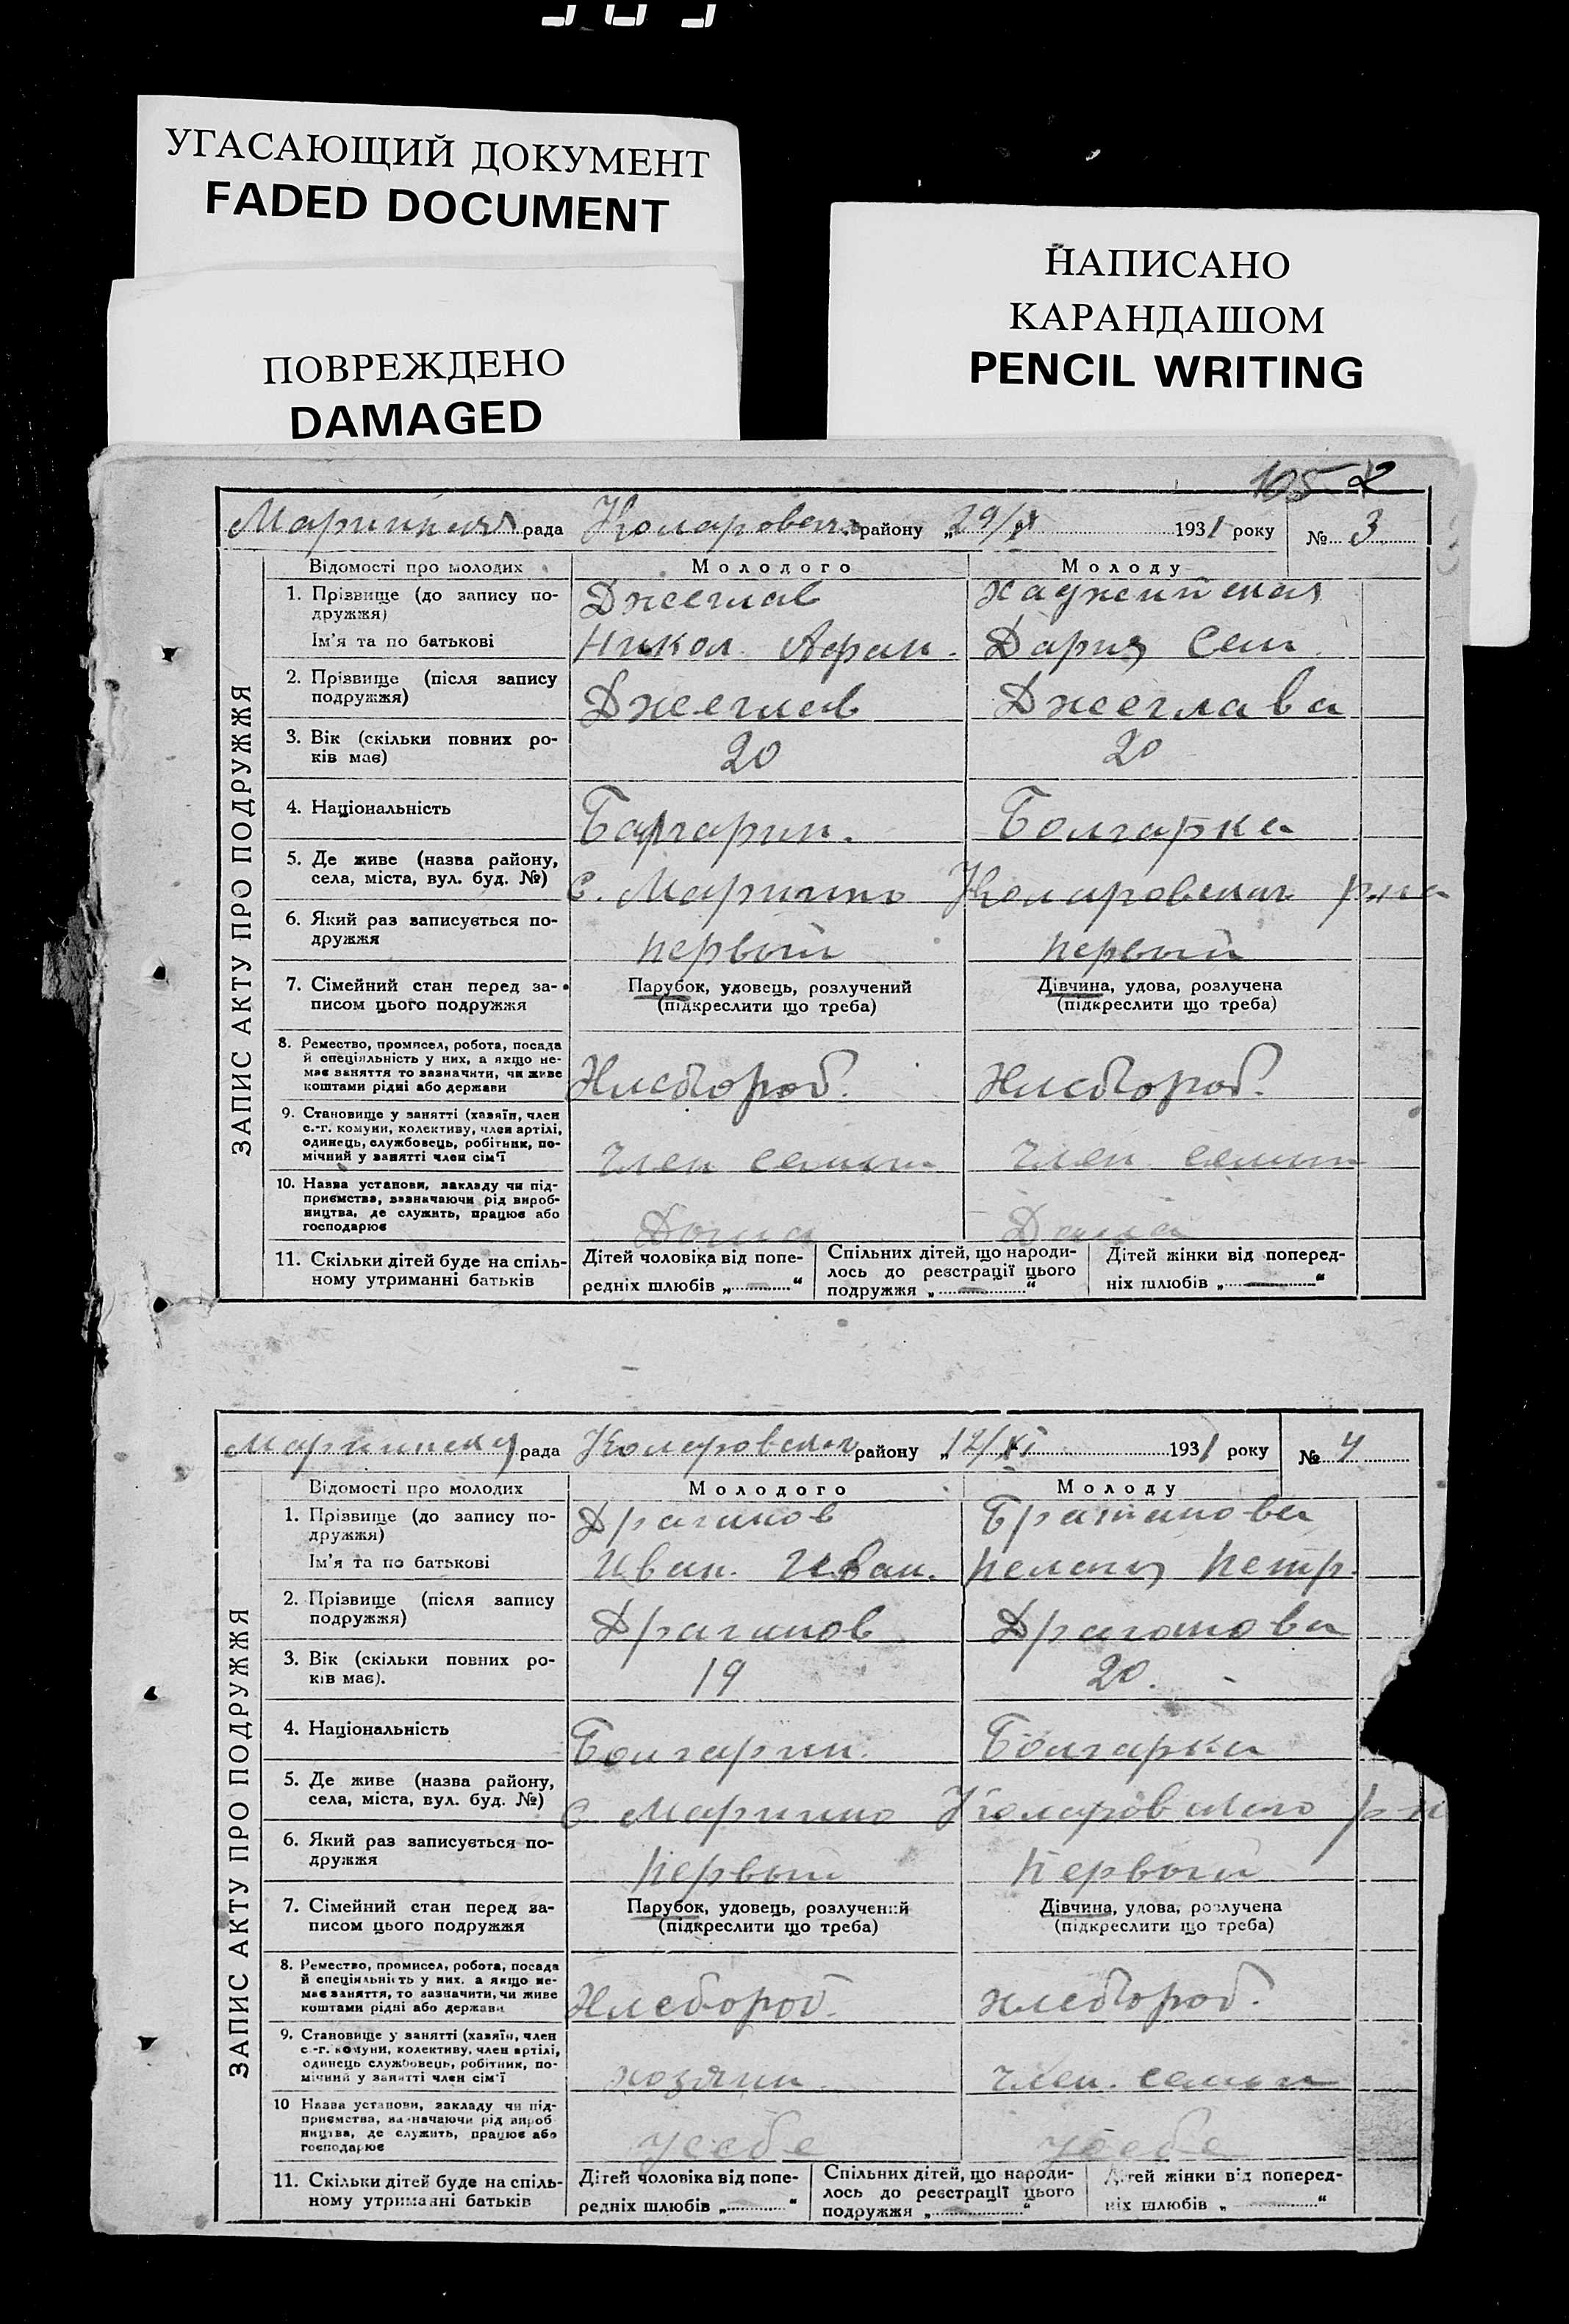 УГАСАЮЩИЙ ДОКУМЕНТ
FADED DOCUMENT
ПОВРЕЖДЕНО
DAMAGED
НАПИСАНО
КАРАНДАШОМ
PENCIL WRITING
105 2
рада району 1931 року № 3
ЗАПИС АКТУ ПРО ПОДРУЖЖЯ
Відомості про молодих Молодого Молоду
1. Прізвище (до запису по-
дружжя) Джеглав
Ім'я та по батькові Никол. Афан. Дария Сем.
2. Прізвище (після запису
подружжя) Джеглав Джеглава
3. Вік (скільки повних ро-
ків має) 20 20
4. Національність Болгарка
5. Де живе (назва району,
села, міста, вул. буд. №) с. Марино
6. Який раз записується по-
дружжя первый первый
7. Сімейний стан перед за-
писом цього подружжя
Парубок, удовець, розлучений
(підкреслити що треба)
Дівчина, удова, розлучена
(підкреслити що треба)
8. Ремество, промисел, робота, посада
й спеціяльність у них, а якщо не-
має заняття то зазначити, чи живе
коштами рідні або держави Хлебороб. Хлебороб.
9. Становище у занятті (хазяїн, член
с.-г. комуни, колективу, член артілі,
одинець, службовець, робітник, по-
мічний у занятті член сім'ї Член семьи Член семьи
10. Назва установи, закладу чи під-
приємства, зазначаючи рід вироб-
ництва, де служить, працює або
господарює Дома Дома
11. Скільки дітей буде на спіль-
ному утриманні батьків
Дітей чоловіка від попе-
редніх шлюбів „ — “
Спільних дітей, що народи-
лось до реєстрації цього
подружжя „ — “
Дітей жінки від поперед-
ніх шлюбів „ — “
рада району „12/XI 1931 року № 4
ЗАПИС АКТУ ПРО ПОДРУЖЖЯ
Відомості про молодих Молодого Молоду
1. Прізвище (до запису по-
дружжя) Драганов Братанова
Ім'я та по батькові Иван. Иван. Петр.
2. Прізвище (після запису
подружжя) Драганов Драганова
3. Вік (скільки повних ро-
ків має). 19 20.
4. Національність Болгарин. Болгарка
5. Де живе (назва району,
села, міста, вул. буд. №) с Марино
6. Який раз записується по-
дружжя Первый Первый
7. Сімейний стан перед за-
писом цього подружжя
Парубок, удовець, розлучений
(підкреслити що треба)
Дівчина, удова, розлучена
(підкреслити що треба)
8. Ремество, промисел, робота, посада
й спеціяльність у них. а якщо не-
має заняття, то зазначити, чи живе
коштами рідні або держави Хлебороб. хлебороб.
9. Становище у занятті (хазяїн, член
с.-г. комуни, колективу, член артілі,
одинець службовець, робітник, по-
мічний у занятті член сім'ї хозяин. член. семьи
10 Назва установи, закладу чи під-
приємства, зазначаючи рід вироб
ництва, де служить, працює або
господарює у себе у себе
11. Скільки дітей буде на спіль-
ному утриманні батьків
Дітей чоловіка від попе-
редніх шлюбів „ “
Спільних дітей, що народи-
лось до реєстрації цього
подружжя „ “
Дітей жінки від поперед-
ніх шлюбів „ “